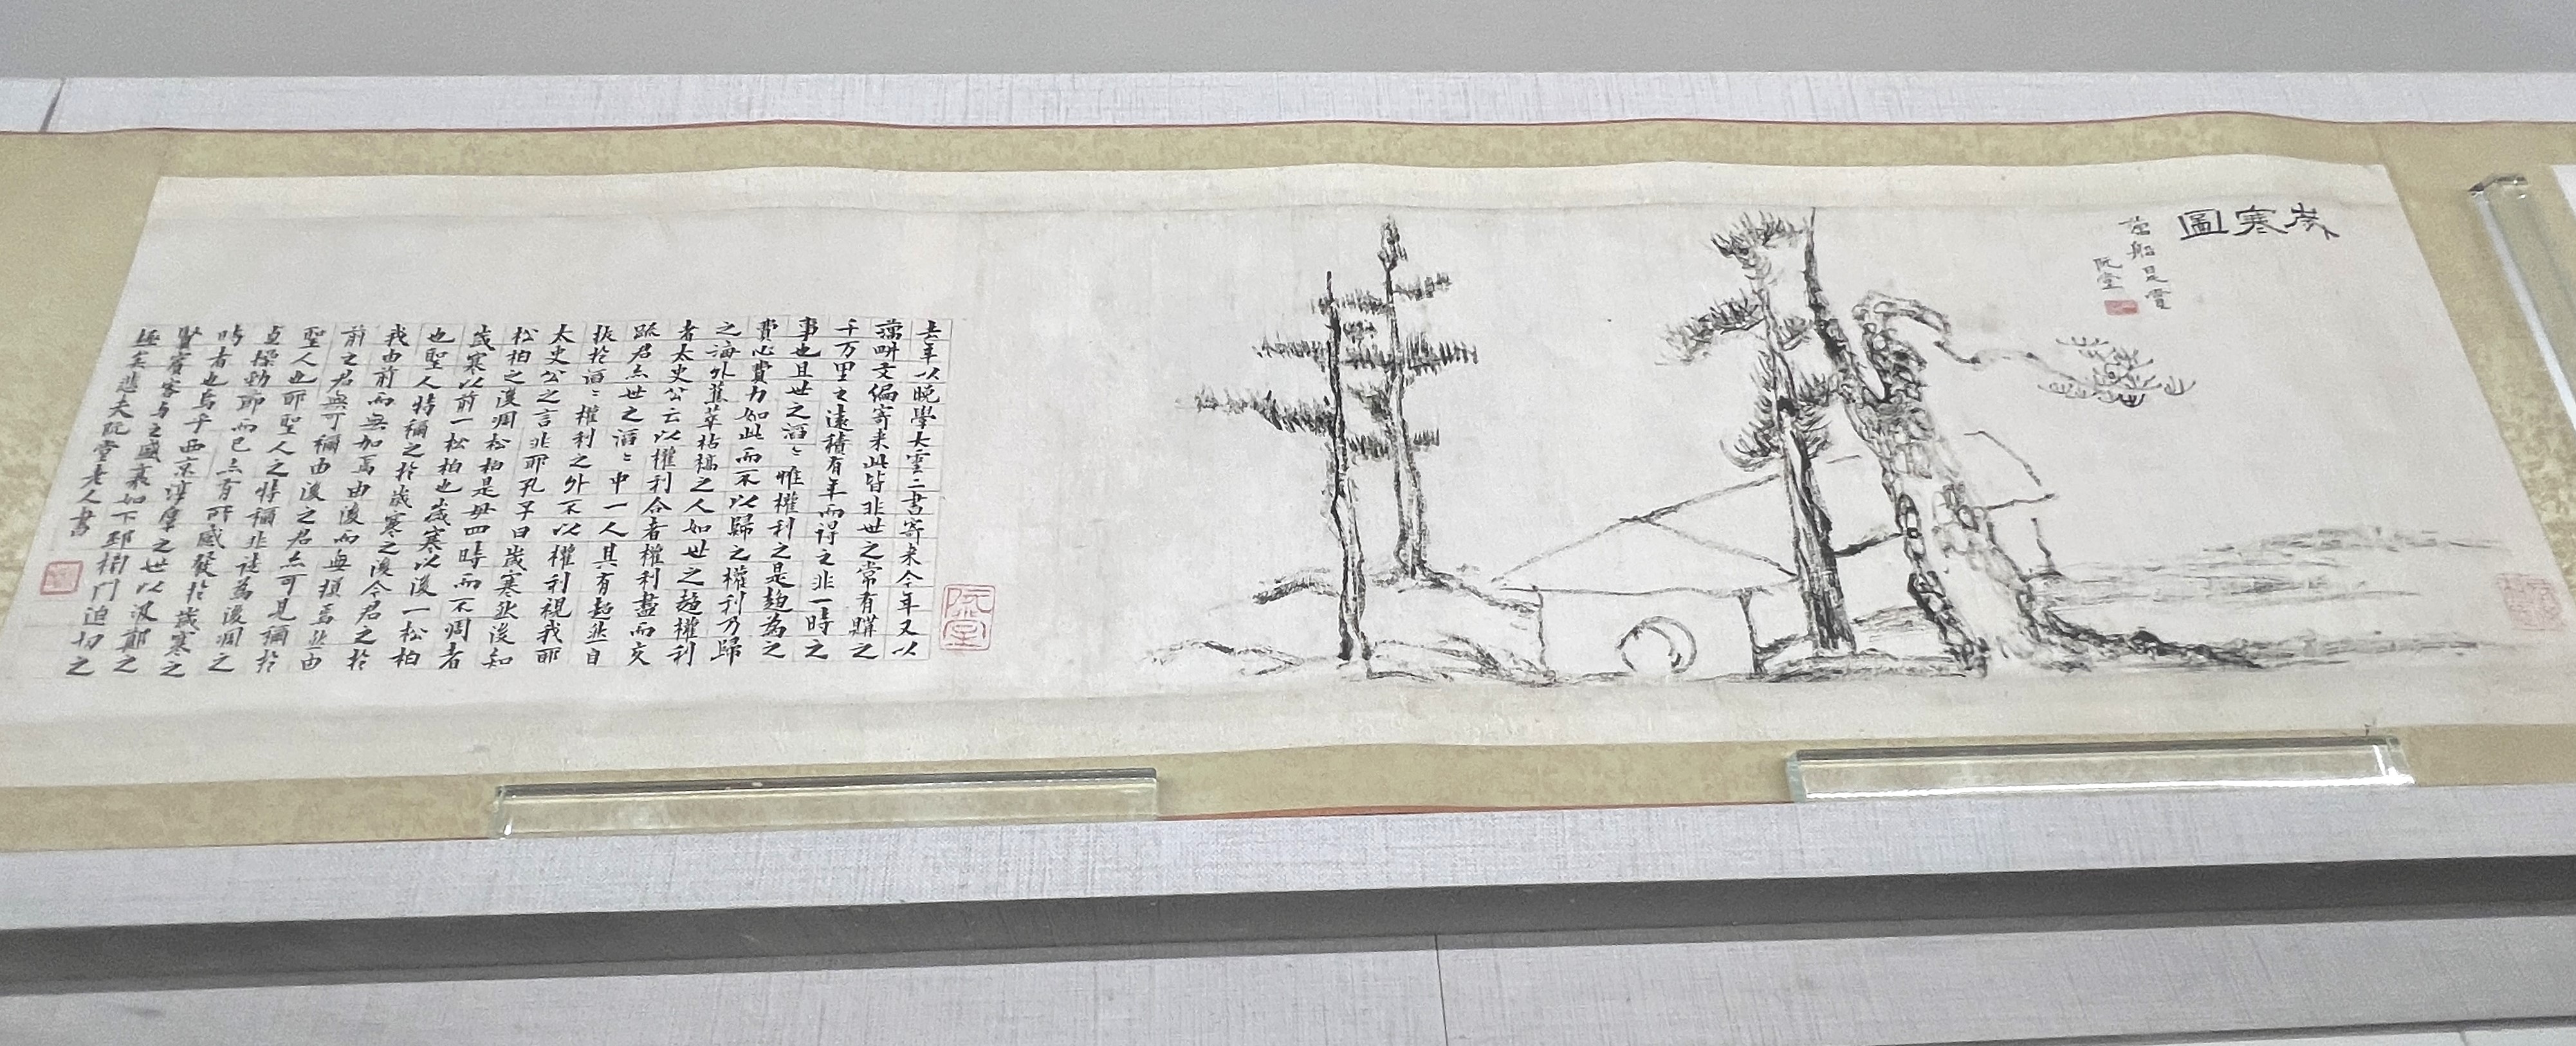 歲寒圖
藕船是賞
阮堂
阮堂
去年以晚學大雲二書寄来今年又以
藕畊文偏寄来此皆非世之常有購之
千万里之遠積有年而得之非一時之
事也且世之滔〻惟權利之是趨為之
費心費力如此而不以歸之權利乃歸
之海外蕉萃枯稿之人如世之趨權利
者太史公云以權利合者權利盡而交
踈君亦世之滔〻中一人其有超然自
拔於滔〻權利之外不以權利視我耶
太史公之言非耶孔子曰歲寒然後知
松柏之後凋松柏是毋四時而不凋者
歲寒以前一松柏也歲寒以後一松柏
也聖人特稱之於歲寒之後今君之於
我由前而無加焉由後而無損焉然由
前之君無可稱由後之君亦可見稱於
聖人也耶聖人之特稱非徒為後凋之
貞操勁節而已亦有所感發於歲寒之
時者也烏乎西京淳厚之世以汲鄭之
賢賓客与之盛衰如下邳榜門迫切之
極矣悲夫阮堂老人書